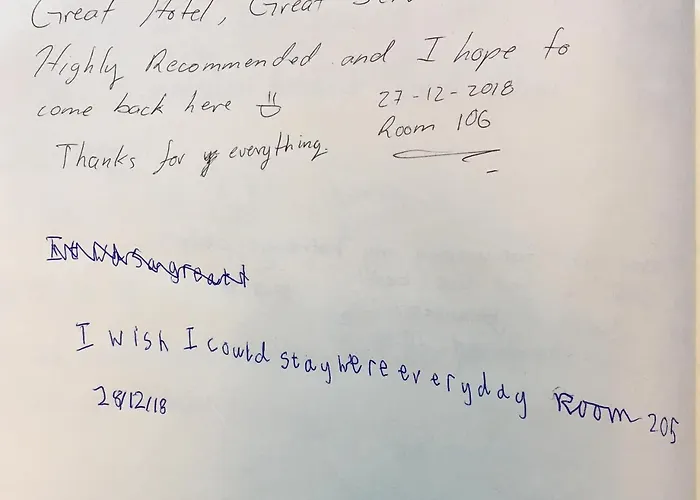 Great Hotel, Great
Highly Recommended and I hope to
come back here
27-12-2018
Room 106
Thanks for everything.
I wish I could stay here everyday Room 205
28/12/18